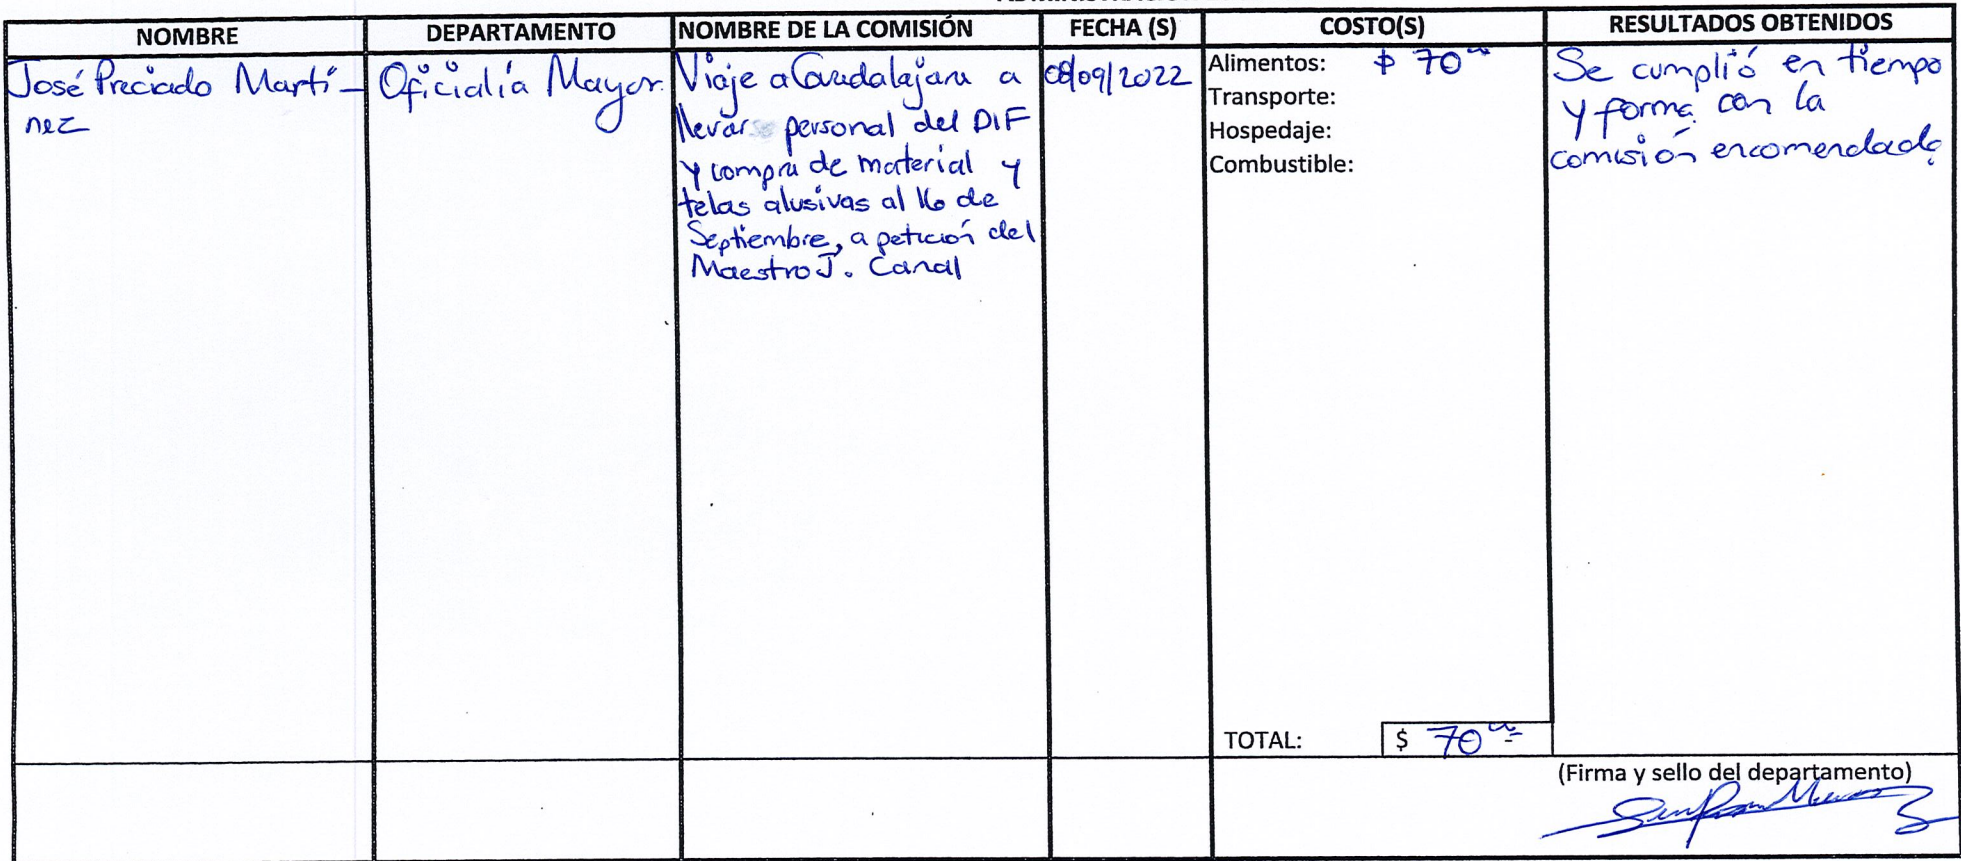 NOMBRE
DEPARTAMENTO
NOMBRE DE LA COMISIÓN
FECHA (S)
COSTO(S)
RESULTADOS OBTENIDOS
José Preciado Martí-
nez
Oficialía Mayor.
Viaje a Guadalajara a
llevar personal del DIF
y compra de material y
telas alusivas al 16 de
Septiembre, a petición del
Maestro J. Canal
/09/2022
Alimentos: $ 70
Transporte:
Hospedaje:
Combustible:
TOTAL: $ 70
Se cumplió en tiempo
y forma con la
comisión encomendada
(Firma y sello del departamento)